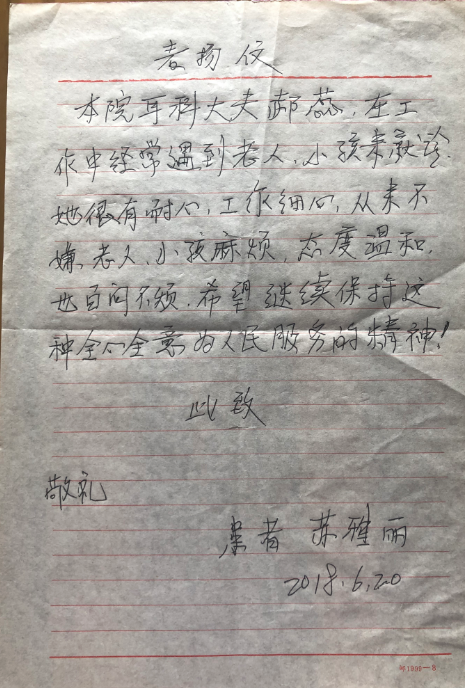 表扬信
本院耳科大夫郝蕊,在工
作中经常遇到老人、小孩来就诊.
她很有耐心,工作细心,从来不
嫌老人、小孩麻烦,态度温和,
也百问不烦.希望继续保持这
种全心全意为人民服务的精神!
此致
敬礼
患者 苏雅丽
2018.6.20